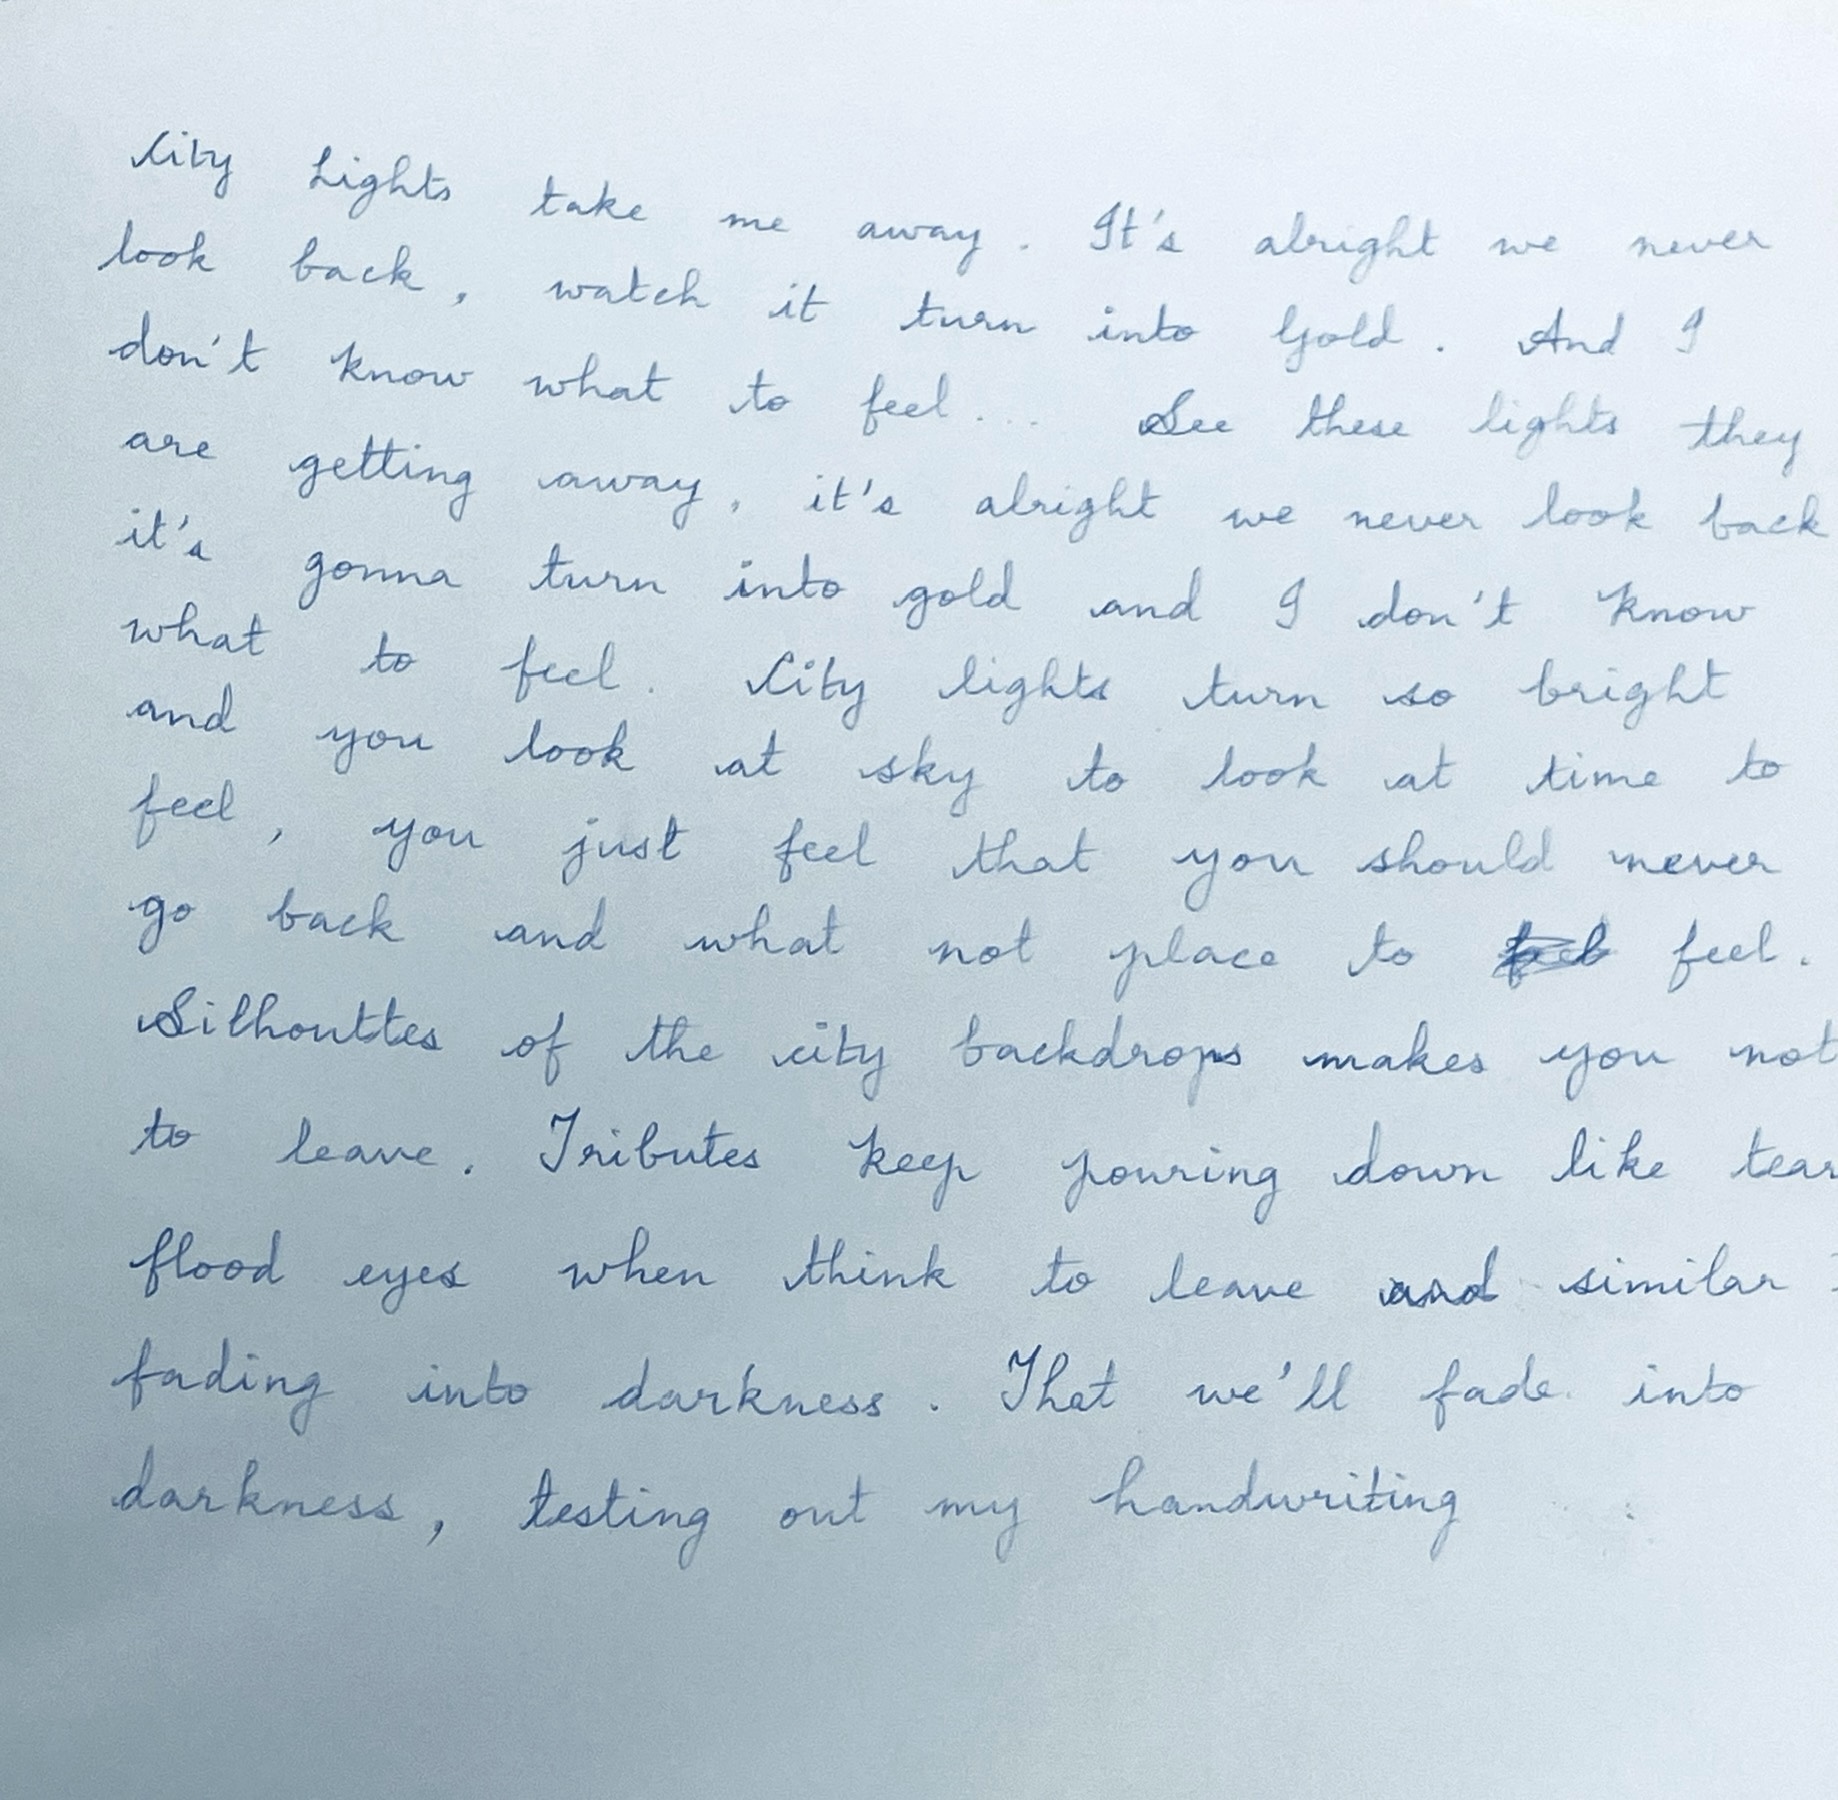 City Lights take me away. It's alright we never
look back, watch it turn into Gold. And I
don't know what to feel... See these lights they
are getting away, it's alright we never look back
it's gonna turn into gold and I don't know
what to feel. City lights turn so bright
and you look at sky to look at time to
feel, you just feel that you should never
go back and what not place to feel.
Silhouttes of the city backdrops makes you not
to leave. Tributes keep pouring down like tear
flood eyes when think to leave and similar
fading into darkness. That we'll fade into
darkness, testing out my handwriting